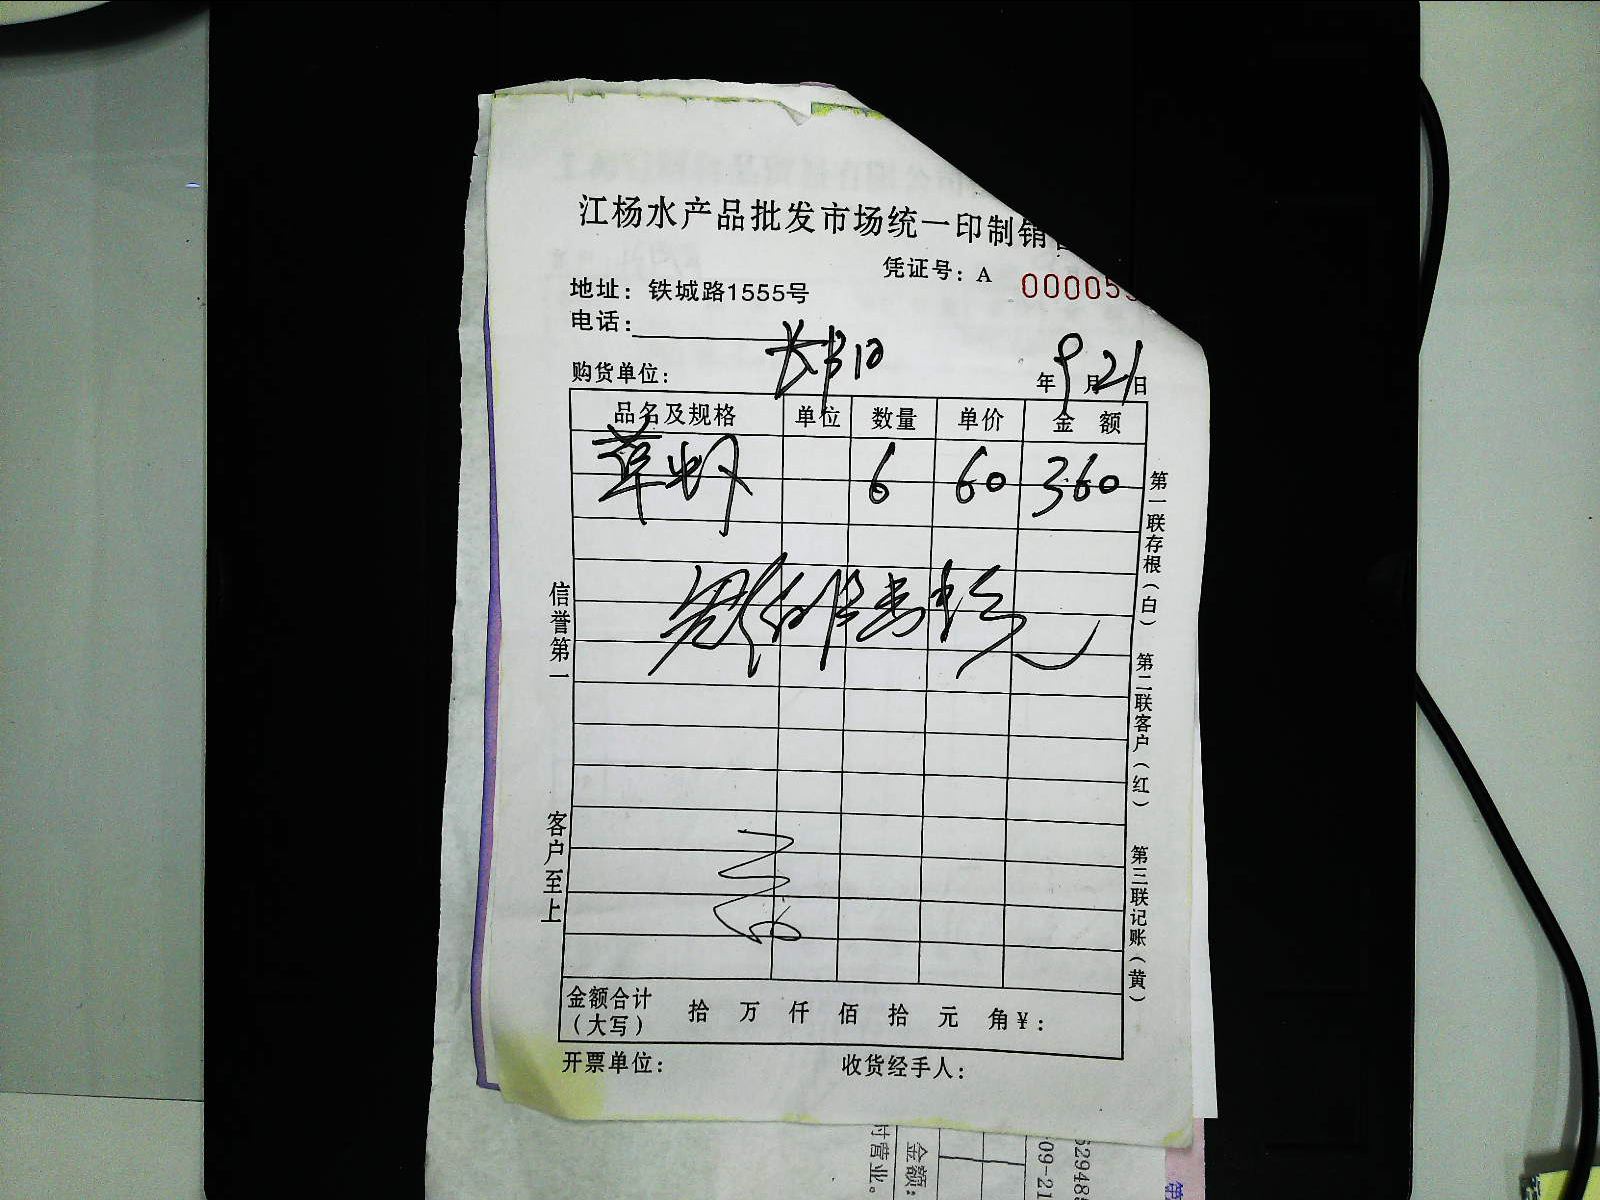 江杨水产品批发市场统一印制销
凭证号：A 00005
地址：铁城路1555号
电话：
购货单位：
年9月21日
品名及规格 单位 数量 单价 金 额
草虾 6 60 360
信誉第一
客户至上
第一联存根（白） 第二联客户（红） 第三联记账（黄）
金额合计（大写） 拾 万 仟 佰 拾 元 角￥：
开票单位： 收货经手人：
付营业。
金额：
09-21